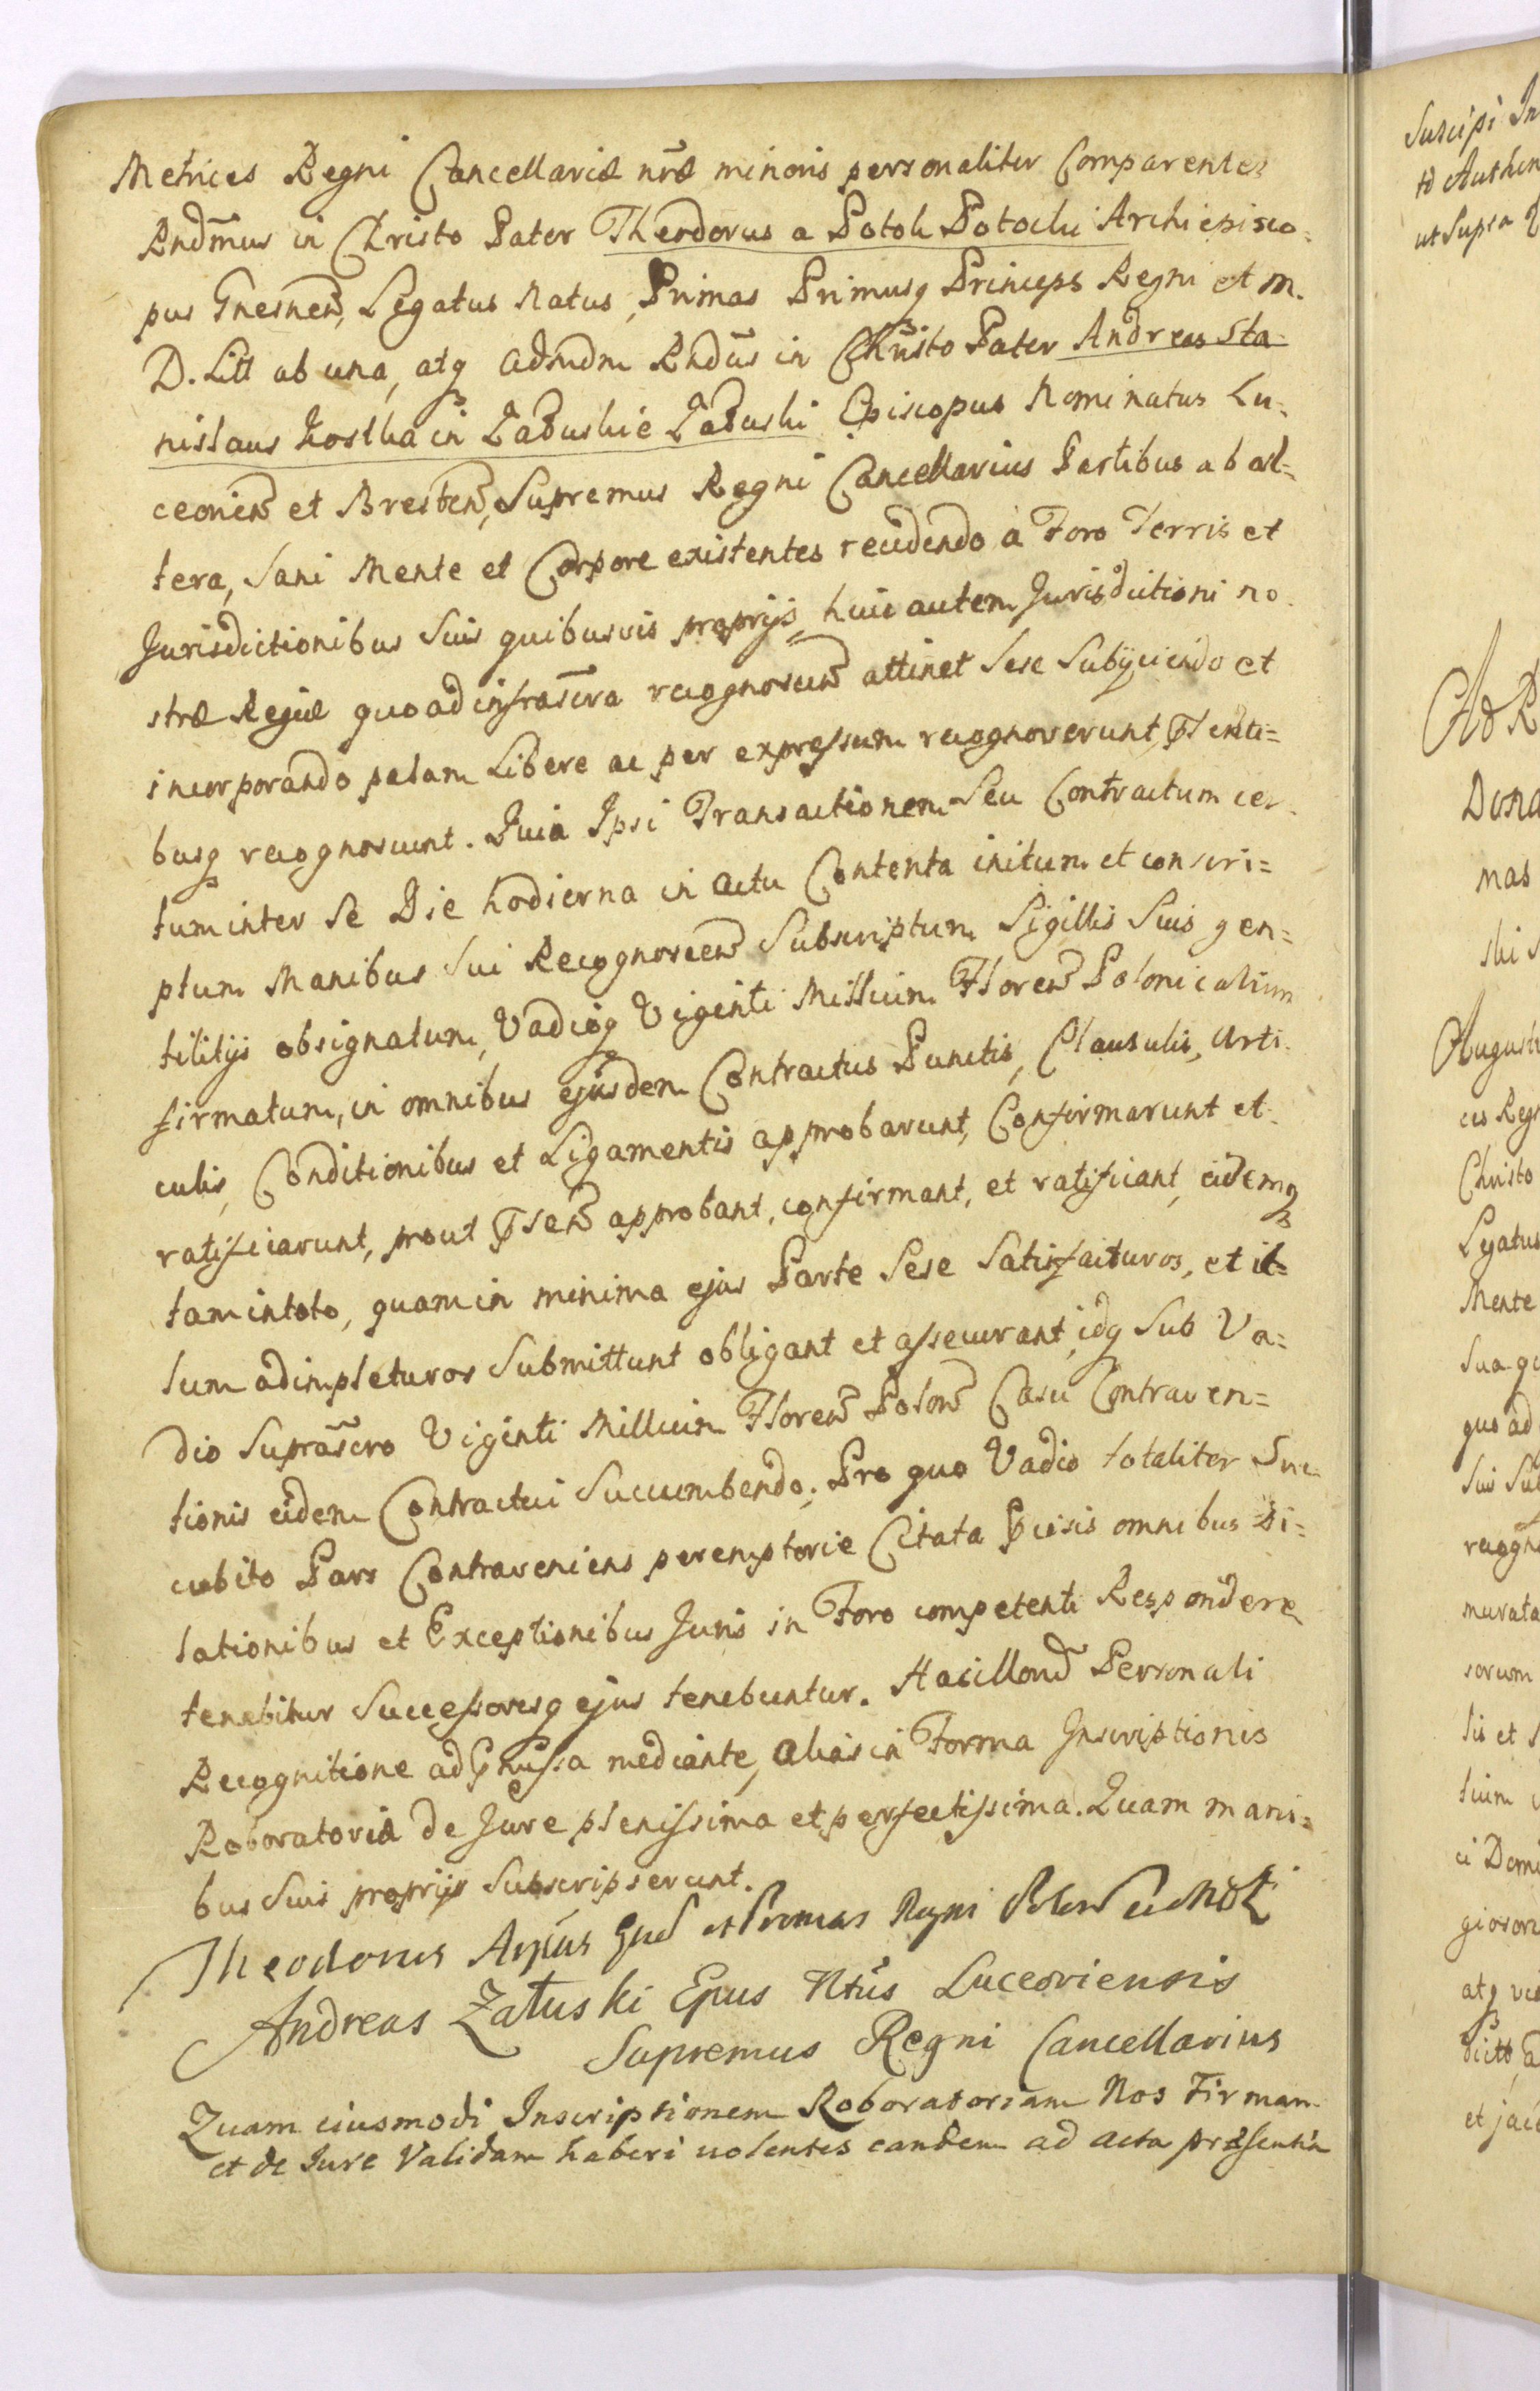 Metrices Regni Cancellariæ nr̃æ minoris personaliter Comparentes
Rndm̃us in Christo Pater Theodorus a Potok Potocki Archiepisco-
pus Gnesnen̄, Legatus Natus, Primas Primusq Princeps Regni et M.
D. Litt ab una, atq admdm Rndūs in Christo Pater Andreas Sta-
nislaus Kostka in Załuskie Załuski Episcopus Nominatus Lu-
ceorien̄ et Bresten̄, Supremus Regni Cancellarius Partibus ab al-
tera, Sani Mente et Corpore existentes recedendo a Foro Terris et
Jurisdictionibus Suis quibusvis proprijs, huic autem Jurisdictioni no-
stræ Regiæ quo ad infrascr̃a recognoscen̄ attinet Sese Subijciendo et
incorporando palam Libere ac per expressum recognoverunt, Psenti-
busq recognoscunt. Quia Ipsi Transactionem Seu Contractum cer-
tum inter Se Die hodierna in actu Contenta initum et conscri-
ptum Manibus Sui Recognoscen̄ Subscriptum Sigillis Suis gen-
tilitijs obsignatum, Vadioq Viginti Millium Floren̄ Polonicalium
firmatum, in omnibus ejusdem Contractus Punctis, Clausulis, Arti-
culis, Conditionibus et Ligamentis approbarunt, Confirmarunt et
ratificarunt, prout Psen̄ approbant, confirmant, et ratificant, eidemq
tam in toto, quam in minima ejus Parte Sese Satisfacturos, et il-
lum adimpleturos Submittunt obligant et assecurant, idq Sub Va-
dio Suprascr̃o Viginti Millium Floren̄ Polon̄ Casu Contraven-
tionis eidem Contractui Succumbendo; Pro quo Vadio totaliter Suc-
cubito Pars Contraveniens peremptorie Citata Pcisis omnibus di-
lationibus et Exceptionibus Juris in Foro competenti Respondere
tenebitur Successoresq ejus tenebuntur. Hac illorum̄ Personali
Recognitione ad Pmissa mediante, alias in Forma Inscriptionis
Roboratoriæ de Jure plenissima et perfectissima. Quam mani-
bus Suis proprijs Subscripserunt.
Theodorus Arp̃us Gn̄ et Primas Regni
Andreas Załuski Epus Ntũs Luceoriensis
Supremus Regni Cancellarius
Quam eiusmodi Inscriptionem Roboratoriam Nos Firmam
et de Iure Validam haberi volentes eandem ad acta præsentia
Suscipi
ut Supra
Dona
mas
Christo
Mente
quo ad
sorum